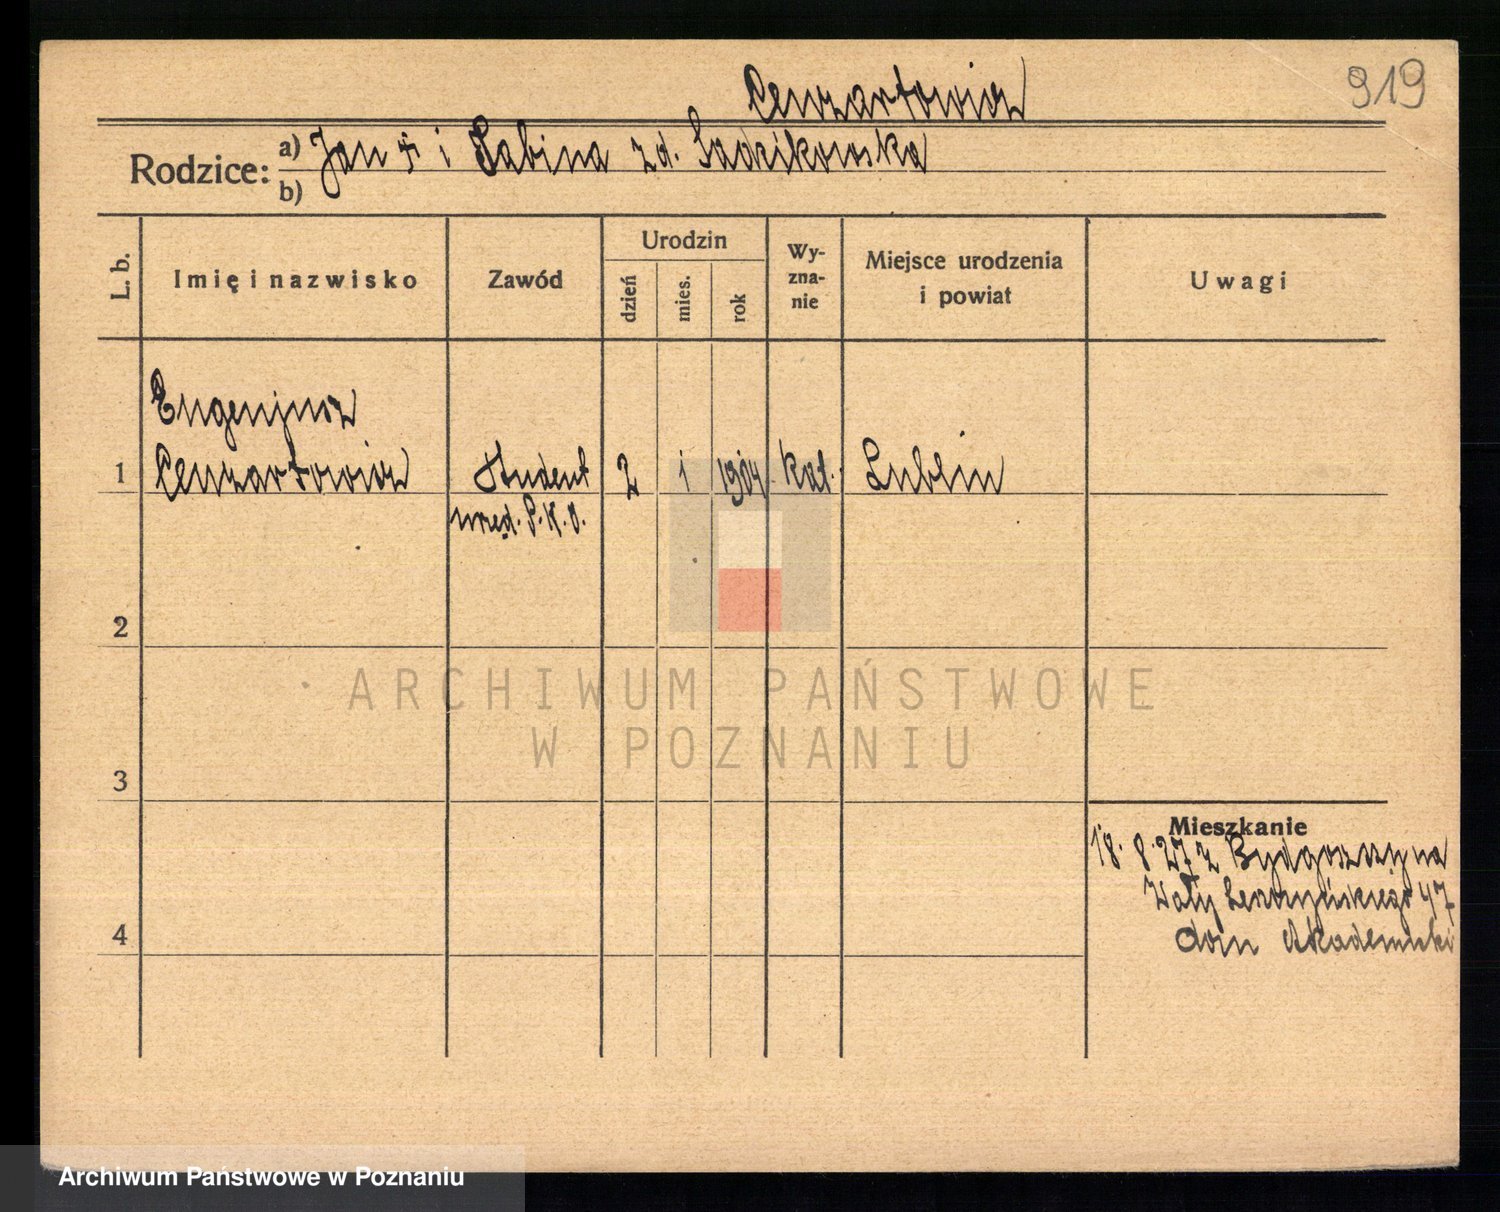 919
Cenzartowicz
Rodzice: a) Jan † i Sabina zd. Sadzikowska
b)
L. b.
Imię i nazwisko
Zawód
Urodzin
dzień
mies.
rok
Wy-
zna-
nie
Miejsce urodzenia
i powiat
Uwagi
Eugenjusz
1 Cenzartowicz Student 2 1 1904 kat. Lublin
urzęd. P.K.O.
2
3
4
Mieszkanie
18. 8. 27 z Bydgoszczy na
Wały Leszczyńskiego 47
dom Akademicki
ARCHIWUM PAŃSTWOWE
W POZNANIU
Archiwum Państwowe w Poznaniu